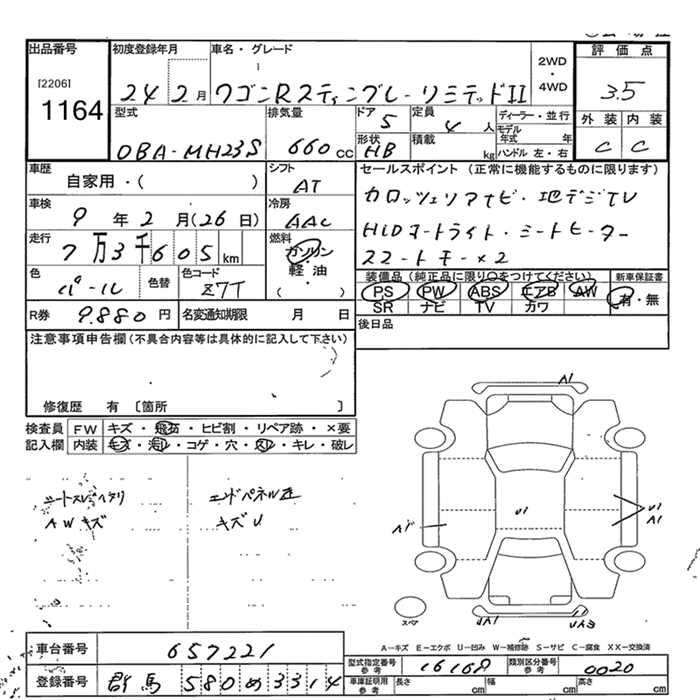 出品番号 初度登録年月 車名・グレード 2WD・4WD 評価点
[2206]
1164 24 2月 ワゴンRスティングレーリミテッドII 3.5
型式 排気量 ドア 定員 ディーラー・並行 外装 内装
DBA-MH23S 660cc 5 4人 モデル年式 年 C C
形状 HB 積載 kg ハンドル 左・右
車歴 シフト セールスポイント (正常に機能するものに限ります)
自家用・( ) AT カロッツェリアナビ・地デジTV
車検 冷房 HIDヘッドライト・シートヒーター
9年2月(26日) AAC スマートキー×2
走行 燃料
7万3千605km ガソリン・軽・油 ( )
色 色替 色コード 装備品 (純正品に限り○をつけてください) 新車保証書
パール Z7T PS PW ABS エアB AW 有・無
SR ナビ TV カワ
R券 9.880円 名変通知期限 月 日 後日品
注意事項申告欄 (不具合内容等は具体的に記入して下さい)
修復歴 有 〔箇所 〕
検査員 FW キズ・飛石・ヒビ割・リペア跡・×要
記入欄 内装 キズ・汚れ・コゲ・穴・スレ・キレ・破レ
シートスレ・ヘタリ エンドパネル歪
AWキズ キズU
A1
U1
A1
U1
A1
スペア
A-キズ E-エクボ U-凹み W-補修跡 S-サビ C-腐食 XX-交換済
車台番号 657221
登録番号 群馬580め3314
型式指定番号 参考 16168 類別区分番号 参考 0020
車庫証明用 参考 長さ cm 幅 cm 高さ cm